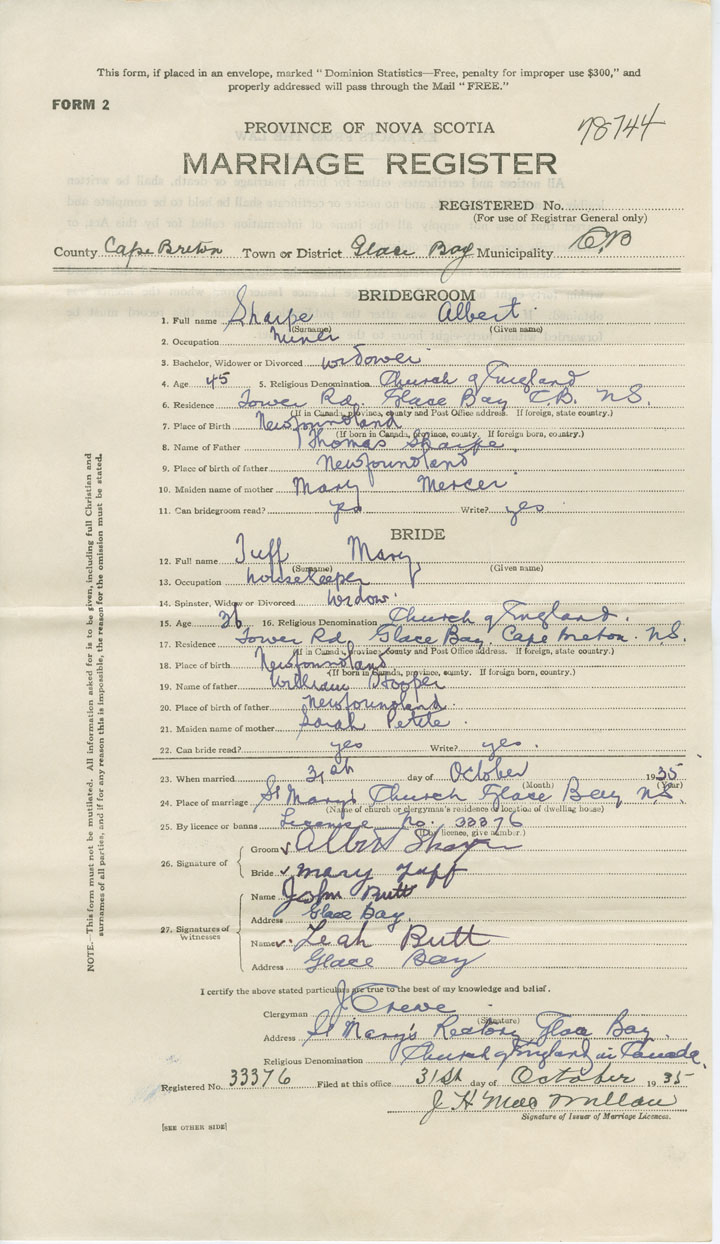 This form, if placed in an envelope, marked "Dominion Statistics—Free, penalty for improper use $300," and
properly addressed will pass through the Mail "FREE."
FORM 2
78744
PROVINCE OF NOVA SCOTIA
MARRIAGE REGISTER
REGISTERED No.
(For use of Registrar General only)
County Cape Breton Town or District Glace Bay Municipality C.B
BRIDEGROOM
1. Full name Sharpe Albert
(Surname) (Given name)
2. Occupation Miner
3. Bachelor, Widower or Divorced widower
4. Age 45 5. Religious Denomination Church of England
6. Residence Tower Rd. Glace Bay C.B. N.S.
(If in Canada, province, county and Post Office address. If foreign, state country.)
7. Place of Birth Newfoundland
(If born in Canada, province, county. If foreign born, country.)
8. Name of Father Thomas Sharpe
9. Place of birth of father Newfoundland
10. Maiden name of mother Mary Mercer
11. Can bridegroom read? yes Write? yes
BRIDE
12. Full name Tuff Mary
(Surname) (Given name)
13. Occupation housekeeper
14. Spinster, Widow or Divorced Widow
15. Age 36 16. Religious Denomination Church of England.
17. Residence Tower Rd. Glace Bay, Cape Breton. N.S.
(If in Canada, province county and Post Office address. If foreign, state country.)
18. Place of birth Newfoundland
(If born in Canada, province, county. If foreign born, country.)
19. Name of father William Hooper
20. Place of birth of father Newfoundland.
21. Maiden name of mother Sarah Petite.
22. Can bride read? yes Write? yes.
23. When married 31st day of October 1935
(Month) (Year)
24. Place of marriage St Mary's Church Glace Bay N.S.
(Name of church or clergyman's residence or location of dwelling house)
25. By licence or banns License No. 33376
(If by licence, give number.)
26. Signature of
Groom Albert
Bride Mary Tuff
27. Signatures of Witnesses
Name John Butt
Address Glace Bay.
Name Leah Butt
Address Glace Bay
I certify the above stated particulars are true to the best of my knowledge and belief.
Clergyman J. Crewe
(Signature)
Address St Mary's Rectory Glace Bay.
Religious Denomination Church of England in Canada.
Registered No. 33376 Filed at this office 31st day of October 1935
J H Mac Millan
Signature of Issuer of Marriage Licences.
[SEE OTHER SIDE]
NOTE.—This form must not be mutilated. All information asked for is to be given, including full Christian and
surnames of all parties, and if for any reason this is impossible, the reason for the omission must be stated.